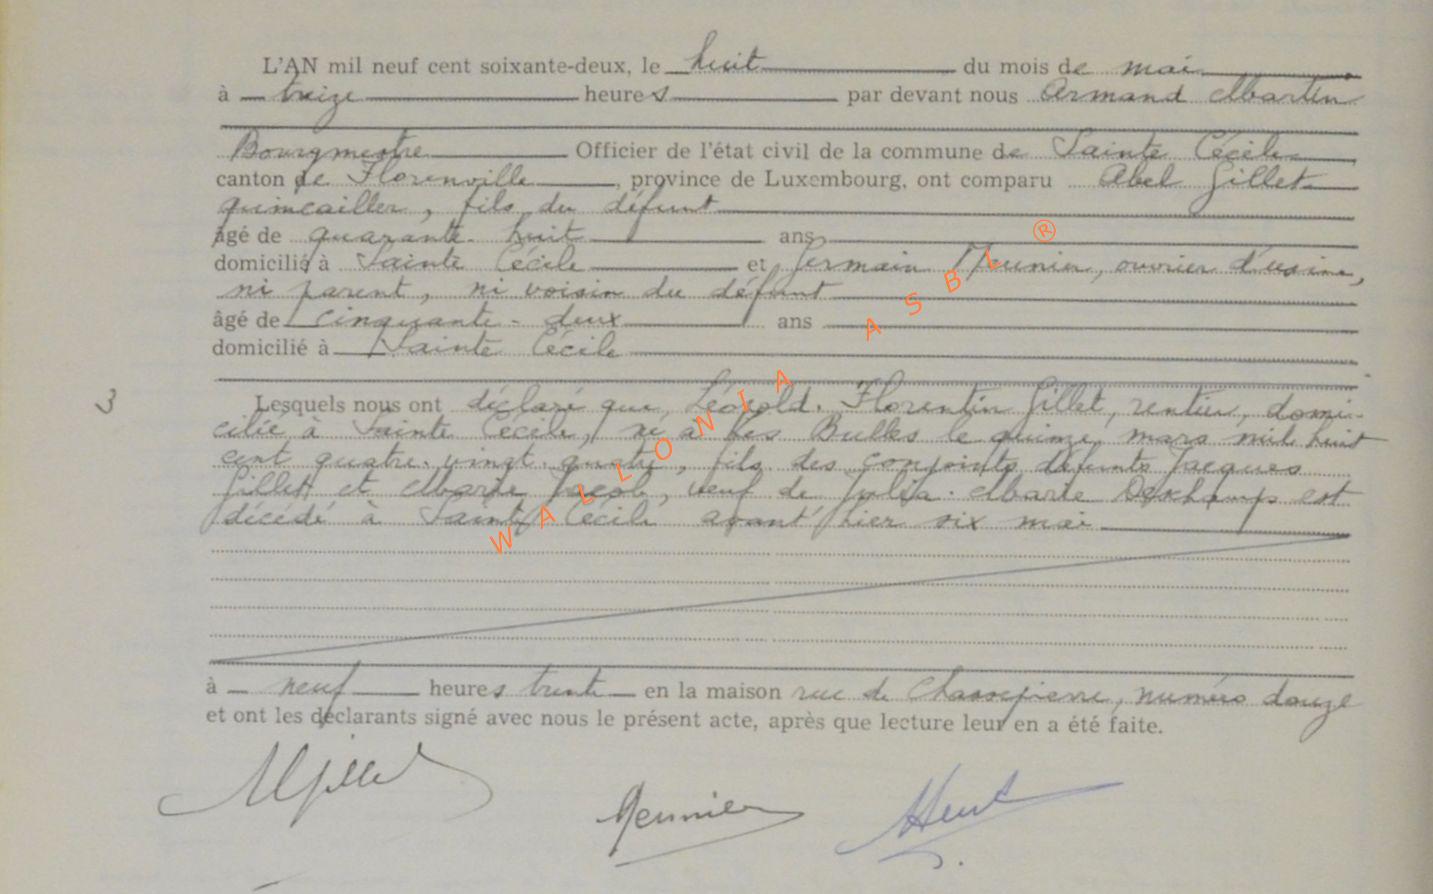 L'AN mil neuf cent soixante-deux, le huit du mois de mai
à treize heures par devant nous Armand Martin
Bourgmestre Officier de l'état civil de la commune de Sainte Cécile
canton de Florenville, province de Luxembourg, ont comparu Abel Gillet
quincailler, fils du défunt
âgé de quarante-huit ans
domicilié à Sainte Cécile et Germain Meunier, ouvrier d'usine,
ni parent, ni voisin du défunt
âgé de cinquante-deux ans
domicilié à Sainte Cécile
3 Lesquels nous ont déclaré que, Léopold. Florentin Gillet, rentier, domi-
cilié à Sainte Cécile, né à Les Bulles le quinze mars mil huit
cent quatre-vingt-quatre, fils des conjoints défunts Jacques
Gillet et Marie Jacob, veuf de Julia-Marie Deschamps est
décédé à Sainte Cécile avant hier six mai
à neuf heures trente en la maison rue de Chassepierre, numéro douze
et ont les déclarants signé avec nous le présent acte, après que lecture leur en a été faite.
AGillet
Meunier
WALLONIA ASBL ®